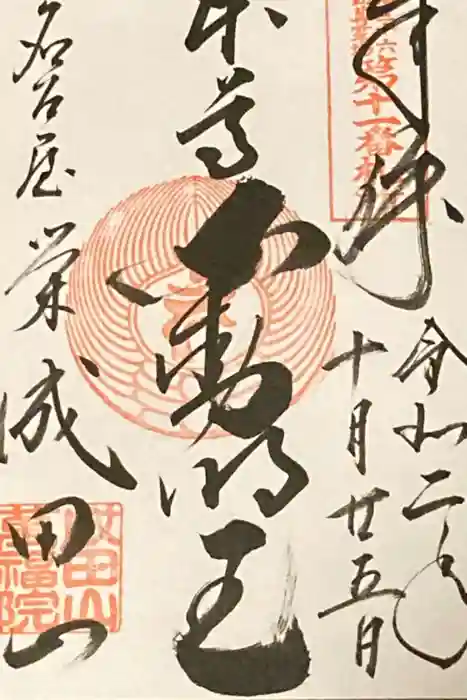 奉拝
令和二年
十月廿五日
本尊
不動明王
名古屋栄
成田山
第十一番札所
成田山
萬福院